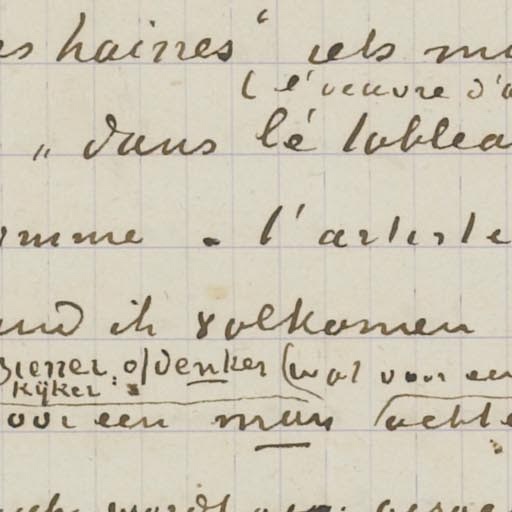 es haines" iets mo
(l'oeuvre d'a
„dans lé tablea
omme - l'artiste
ind ik volkomen
ziener of denker (wat voor een
kijker
oor een man achte
wordt